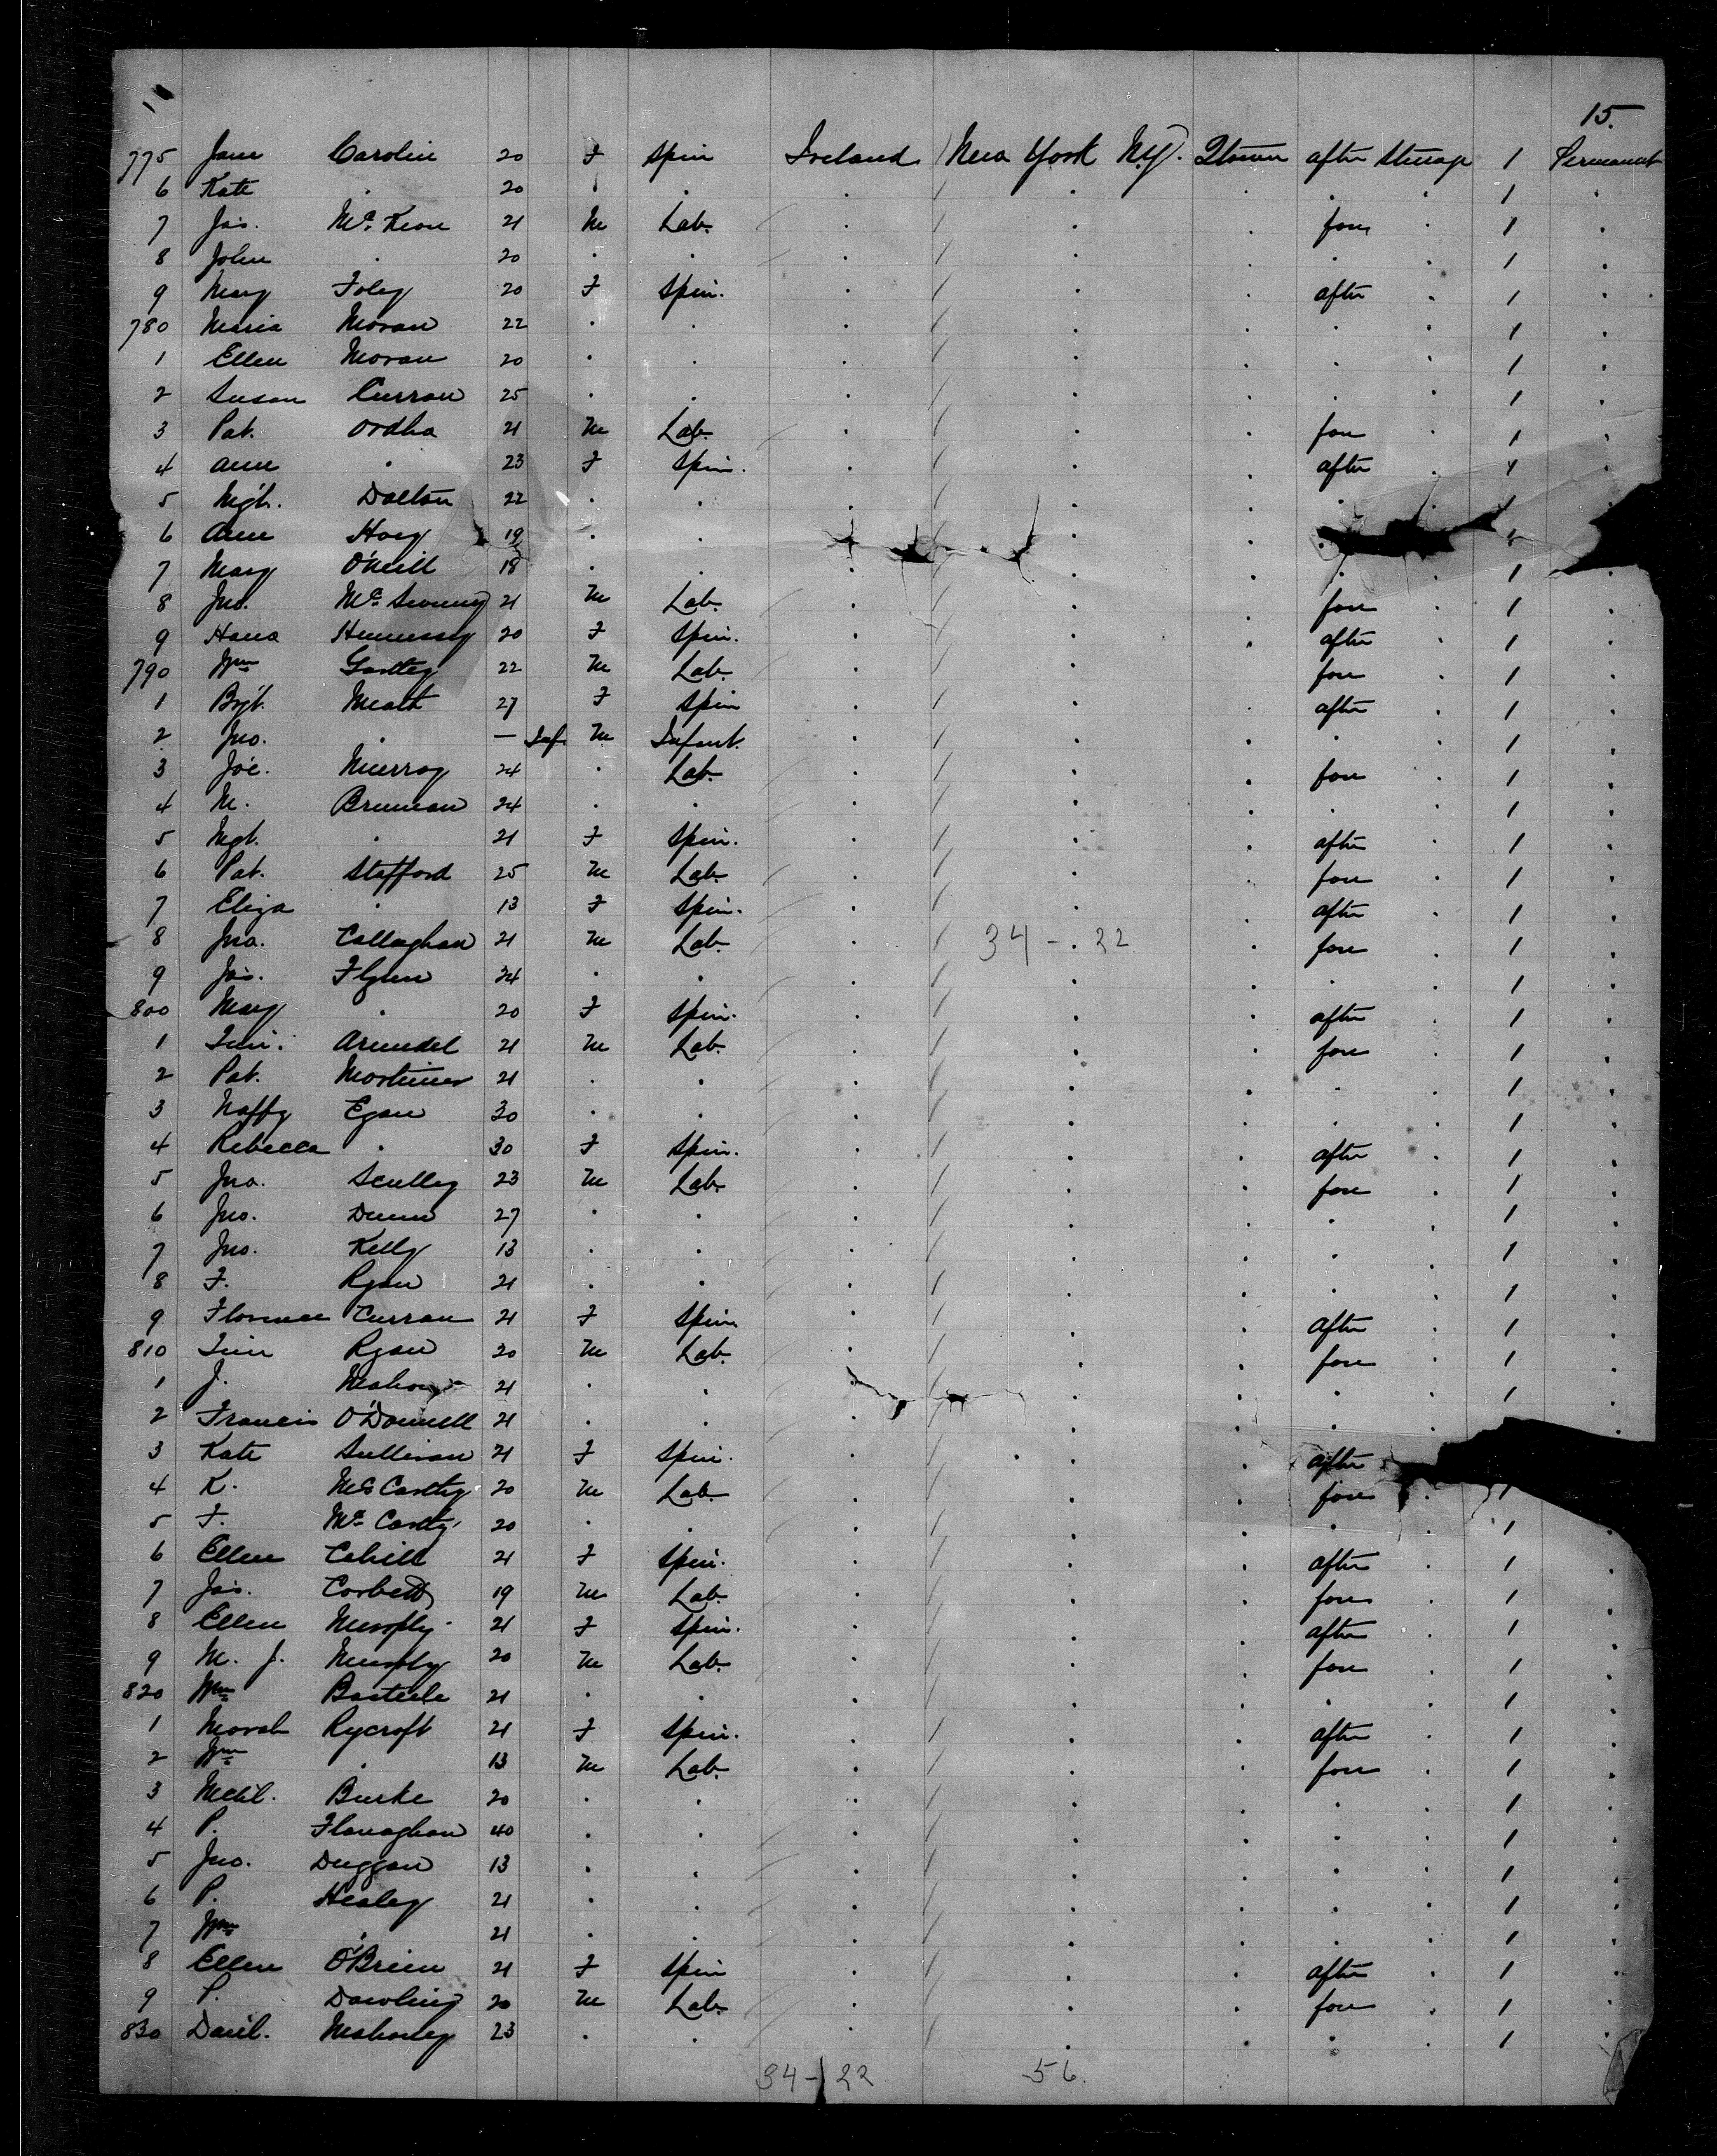 15.
775 Jane Carolin 20 F Spin Ireland New York N.Y. Qtown after Steerage 1 Permanent
6 Kate . 20 " . . . . . . 1 .
7 Jas. Mc. Keon 21 M Lab. . . . fore . 1 .
8 John . 20 . . . . . . . 1 .
9 Mary Foley 20 F Spin. . . . after . 1 .
780 Maria Moran 22 . . . . . . . 1 .
1 Ellen Moran 20 . . . . . . . 1 .
2 Susan Curran 25 . . . . . . . 1 .
3 Pat. 21 M Lab. . . . fore . 1 .
4 Ann . 23 F Spin. . . . after . 1 .
5 Mgt. Dalton 22 . . . . . . . 1 .
6 Ann Hoey 19 . . . . . .
7 Mary O'Neill 18 . . . . . . . 1 .
8 Jno. Mc. Sweeney 21 M Lab. . . . fore . 1 .
9 Hana Hennessy 20 F Spin. . . . after . 1 .
790 Wm 22 M Lab. . . . fore . 1 .
1 Bgt. Meath 27 F Spin . . . after . 1 .
2 Jno. . — Inf. M Infant. . . . . . 1 .
3 Joe. Murray 24 . Lab. . . . fore . 1 .
4 M. Brennan 24 . . . . . . . 1 .
5 Mgt. . 21 F Spin. . . . after . 1 .
6 Pat. Stafford 25 M Lab. . . . fore . 1 .
7 Eliza . 13 F Spin. . . . after . 1 .
8 Jno. Callaghan 21 M Lab. . 34 - 22 . fore . 1 .
9 Jas. Flynn 24 . . . . . . . 1 .
800 Mary . 20 F Spin. . . . after . 1 .
1 Tim. Arundel 21 M Lab. . . . fore . 1 .
2 Pat. Mortimer 21 . . . . . . . 1 .
3 Egan 30 . . . . . . . 1 .
4 Rebecca . 30 F Spin. . . . after . 1 .
5 Jno. Sculley 23 M Lab. . . . fore . 1 .
6 Jno. Dunne 27 . . . . . . . 1 .
7 Jno. Kelly 13 . . . . . . . 1 .
8 F. Ryan 21 . . . . . . . 1 .
9 Florence Curran 21 F Spin. . . . after . 1 .
810 Tim Ryan 20 M Lab. . . . fore . 1 .
1 J. Mahony 21 . . . . . . . 1 .
2 Francis O'Donnell 21 . . . . . . .
3 Kate Sullivan 21 F Spin. . . . after
4 K. McCarthy 20 M Lab. . . . fore . 1
5 F. Mc. Carthy 20 . . . . . . . 1 .
6 Ellen Cahill 21 F Spin. . . . after . 1 .
7 Jas. Corbett 19 M Lab. . . . fore . 1 .
8 Ellen Murphy 21 F Spin. . . . after . 1 .
9 M. J. Murphy 20 M Lab. . . . fore . 1 .
820 Wm 21 . . . . . . . 1 .
1 Norah Rycroft 21 F Spin. . . . after . 1 .
2 Wm . 13 M Lab. . . . fore . 1 .
3 Michl. Burke 20 . . . . . . . 1 .
4 P. Flanaghan 40 . . . . . . . 1 .
5 Jno. Duggan 13 . . . . . . . 1 .
6 P. Healey 21 . . . . . . . 1 .
7 Wm . 21 . . . . . . . 1 .
8 Ellen O'Brien 21 F Spin . . . after . 1 .
9 P. Dowling 20 M Lab. . . . fore . 1 .
830 Danl. Mahoney 23 . . . . . . . 1
34 - 22 56.